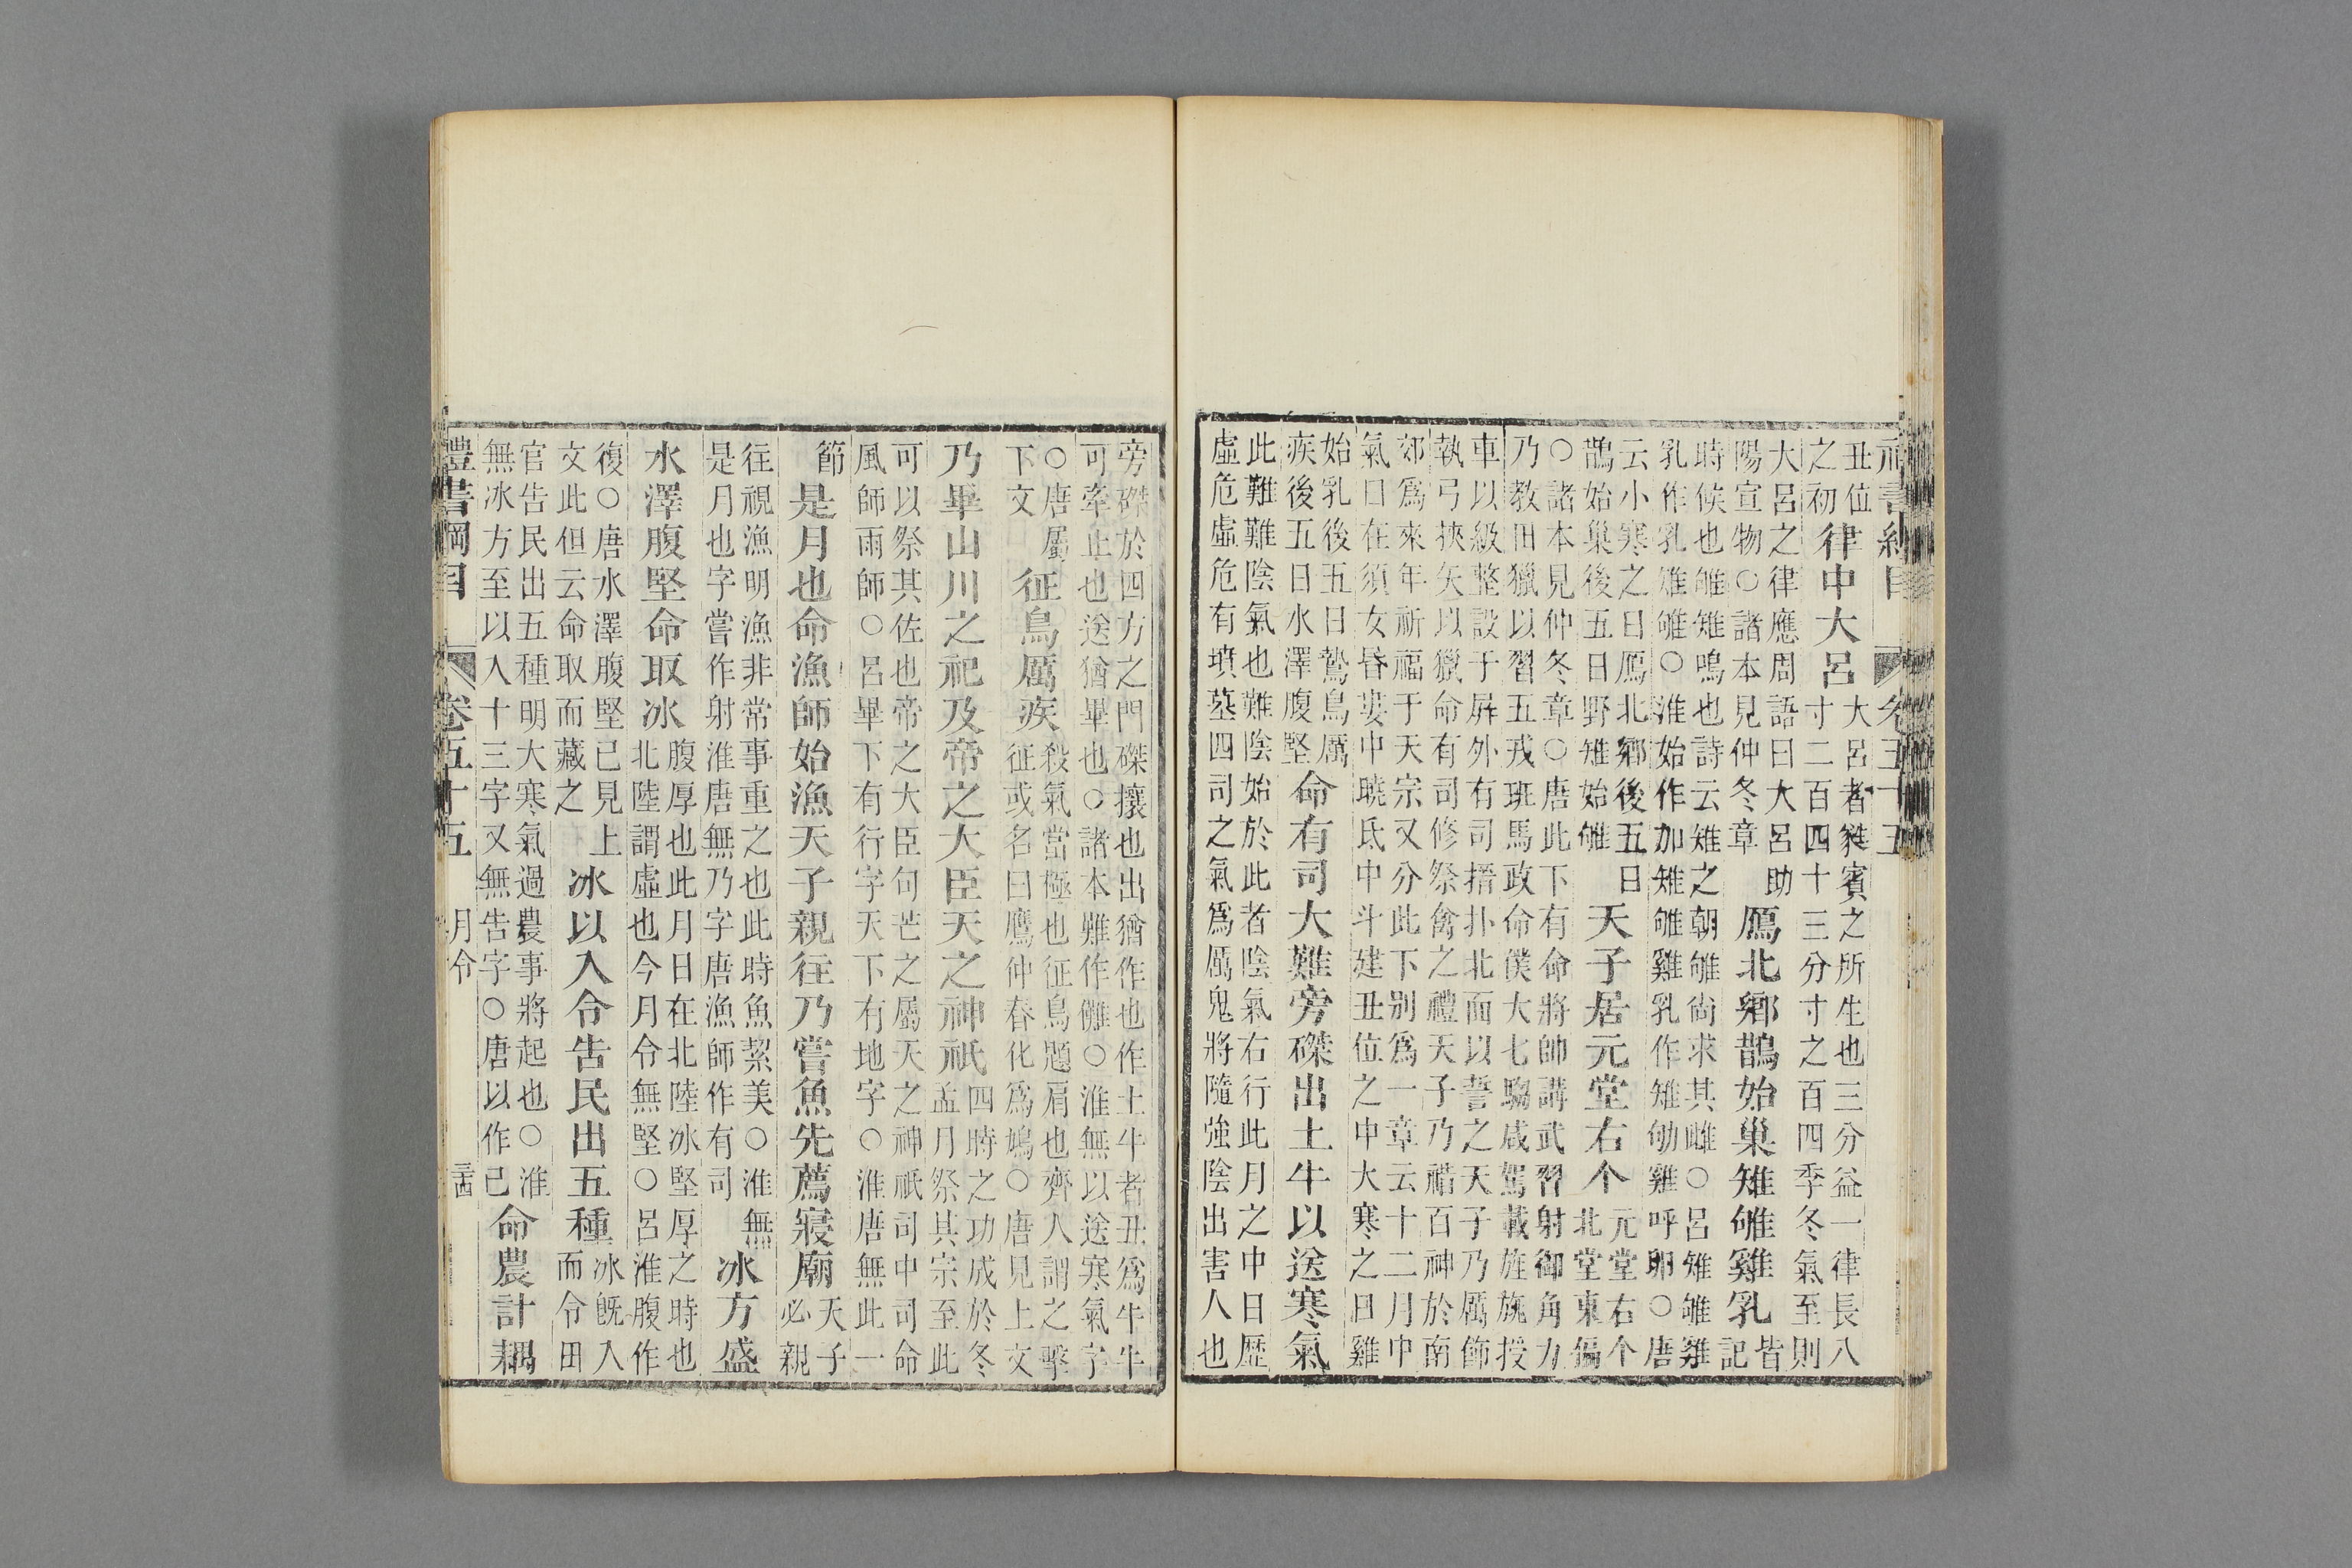 丑位
之初
律中大呂
大呂者蕤賓之所生也三分益一律長八
寸二百四十三分寸之百四季冬氣至則
大呂之律應周語曰大呂助
陽宣物○諸本見仲冬章
鴈北鄉鵲始巢雉雊雞乳
皆
記
時候也雊雉鳴也詩云雉之朝雊尙求其雌○呂雉雊雞
乳作乳雉雊○淮始作加雉雊雞乳作雉雊雞呼卵○唐
云小寒之日鴈北鄉後五日
鵲始巢後五日野雉始雊
天子居元堂右个
元堂右个
北堂東偏
○諸本見仲冬章○唐此下有命將帥講武習射御角力
乃教田獵以習五戎班馬政命僕大七騶咸駕載旌旐授
車以級整設于屏外有司搢扑北面以誓之天子乃厲飾
執弓挾矢以獵命有司修祭禽之禮天子乃䄍百神於南
郊爲來年祈福于天宗又分此下別爲一章云十二月中
氣日在須女昏婁中曉氐中斗建丑位之中大寒之日雞
始乳後五日鷙鳥厲
疾後五日水澤腹堅
命有司大難旁磔出土牛以送寒氣
此難難陰氣也難陰始於此者陰氣右行此月之中日歴
虛危虛危有墳墓四司之氣爲厲鬼將隨強陰出害人也
旁磔於四方之門磔攘也出猶作也作土牛者丑爲牛牛
可牽止也送猶畢也○諸本難作儺○淮無以送寒氣字
○唐屬
下文
征鳥厲疾
殺氣當極也征鳥題肩也齊人謂之擊
征或名曰鷹仲春化爲鳩○唐見上文
乃畢山川之祀及帝之大臣天之神祇
四時之功成於冬
孟月祭其宗至此
可以祭其佐也帝之大臣句芒之屬天之神祇司中司命
風師雨師○呂畢下有行字天下有地字○淮唐無此一
節
是月也命漁師始漁天子親往乃嘗魚先薦寢廟
天子
必親
往視漁明漁非常事重之也此時魚絜美○淮無
是月也字嘗作射淮唐無乃字唐漁師作有司
冰方盛
水澤腹堅命取冰
腹厚也此月日在北陸冰堅厚之時也
北陸謂虛也今月令無堅○呂淮腹作
復○唐水澤腹堅已見上
文此但云命取而藏之
冰以入令告民出五種
冰旣入
而令田
官告民出五種明大寒氣過農事將起也○淮
無冰方至以入十三字又無告字○唐以作已
命農計耦
禮書綱目
卷五十五
月令